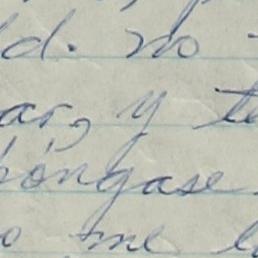 ld. no
ar, y te
póngase
o me